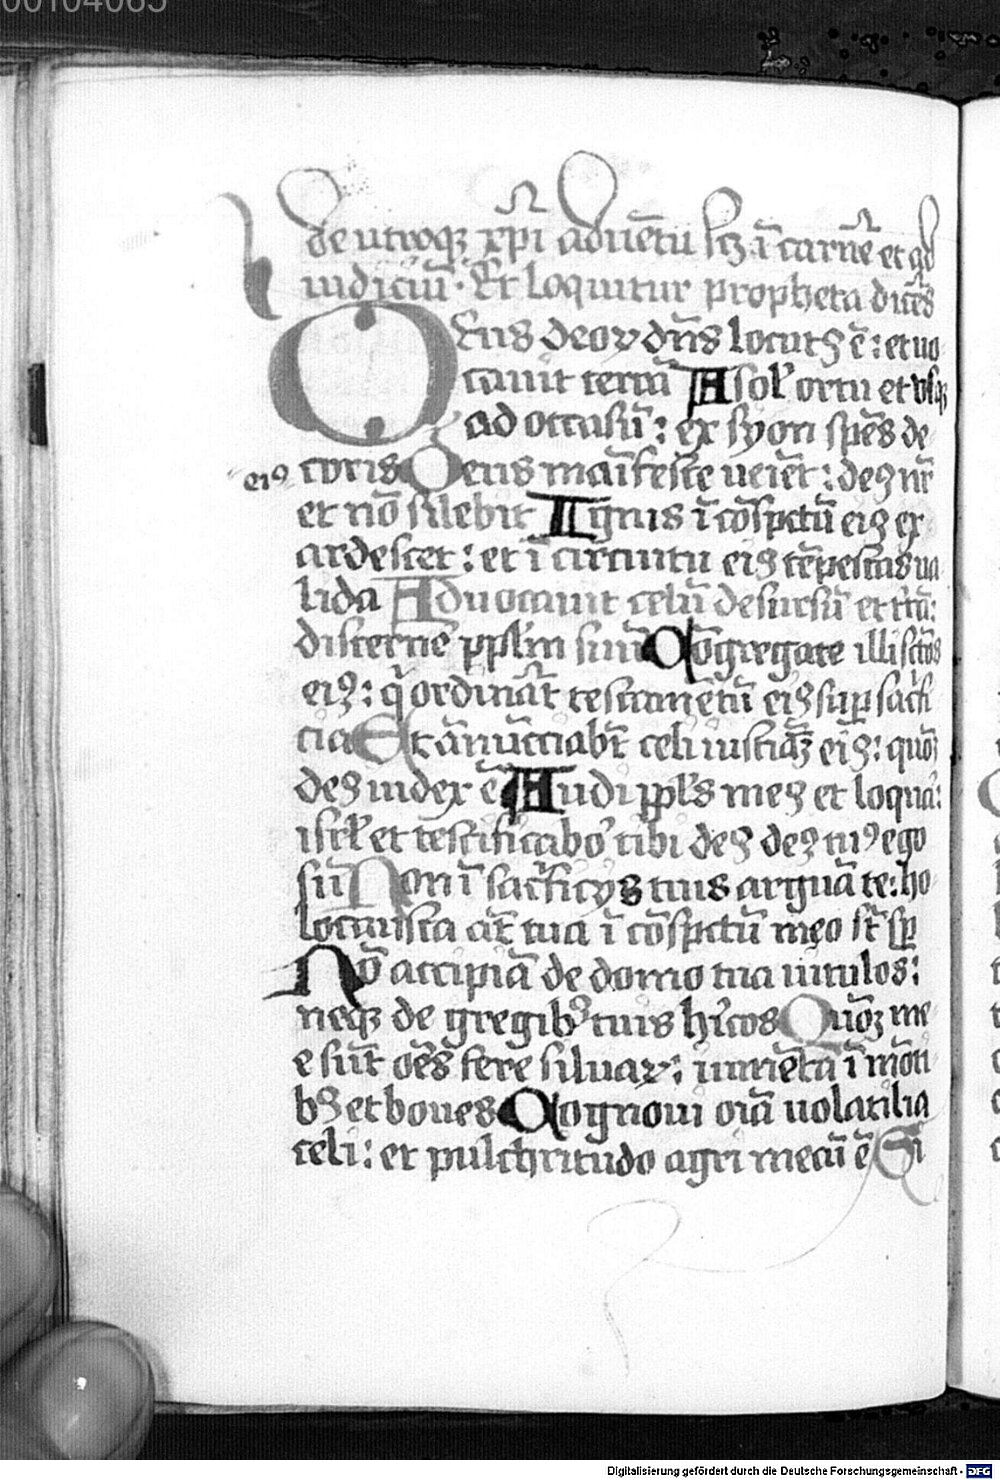 00104065
de utroqꝫ xp̄i aduētū sꝫ ī carnē et ad
iudiciū · Et loquitur propheta dicēs
Deus deoꝝ dn̄s locutꝰ ē : et uo
cauit terrā A sol̕ ortu et usqꝫ
ad occasū : ex syon spēs de
eiꝰ coris Deus maīfeste ueīet : deꝰ nr̄
et nō silebit Ignis ī cōspctū eiꝰ ex
ardescet : et ī circuitu eiꝰ tēpestas ua
lida Aduocauit celū desursū et trā :
discerne ppl̄m suū Cōgregate illi sc̄tos
eiꝰ : q̄ ordināt testamētū eiꝰ sup sacⁱfi
cia Et ānūcciabt̄ celi iusticiā eiꝰ : quō
deꝰ iudex ē Audi ppl̄s meꝰ et loquar :
isrl̄ et testificabor tibi deꝰ deꝰ tuꝰ ego
sū Non ī sacⁱficijs tuis arguā te : ho
locausta aūt tua ī cōspctū meo st̄ sp̄
Nō accipiā de domo tua uitulos :
neqꝫ de gregibꝰ tuis hⁱcos Quō me
e sūt oēs fere siluaꝝ : iumēta ī mōti
bꝰ et boues Cognoui oīa uolatilia
celi : et pulchritudo agri mecū ē Si
Digitalisierung gefördert durch die Deutsche Forschungsgemeinschaft - DFG